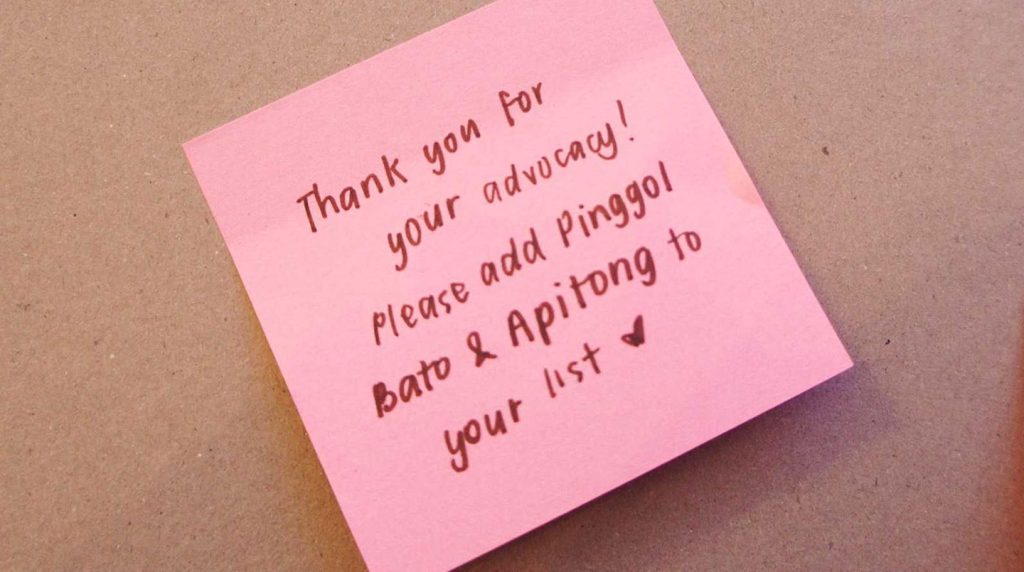 Thank you for
your advocacy!
Please add Pinggol
Bato & Apitong to
your list ♥